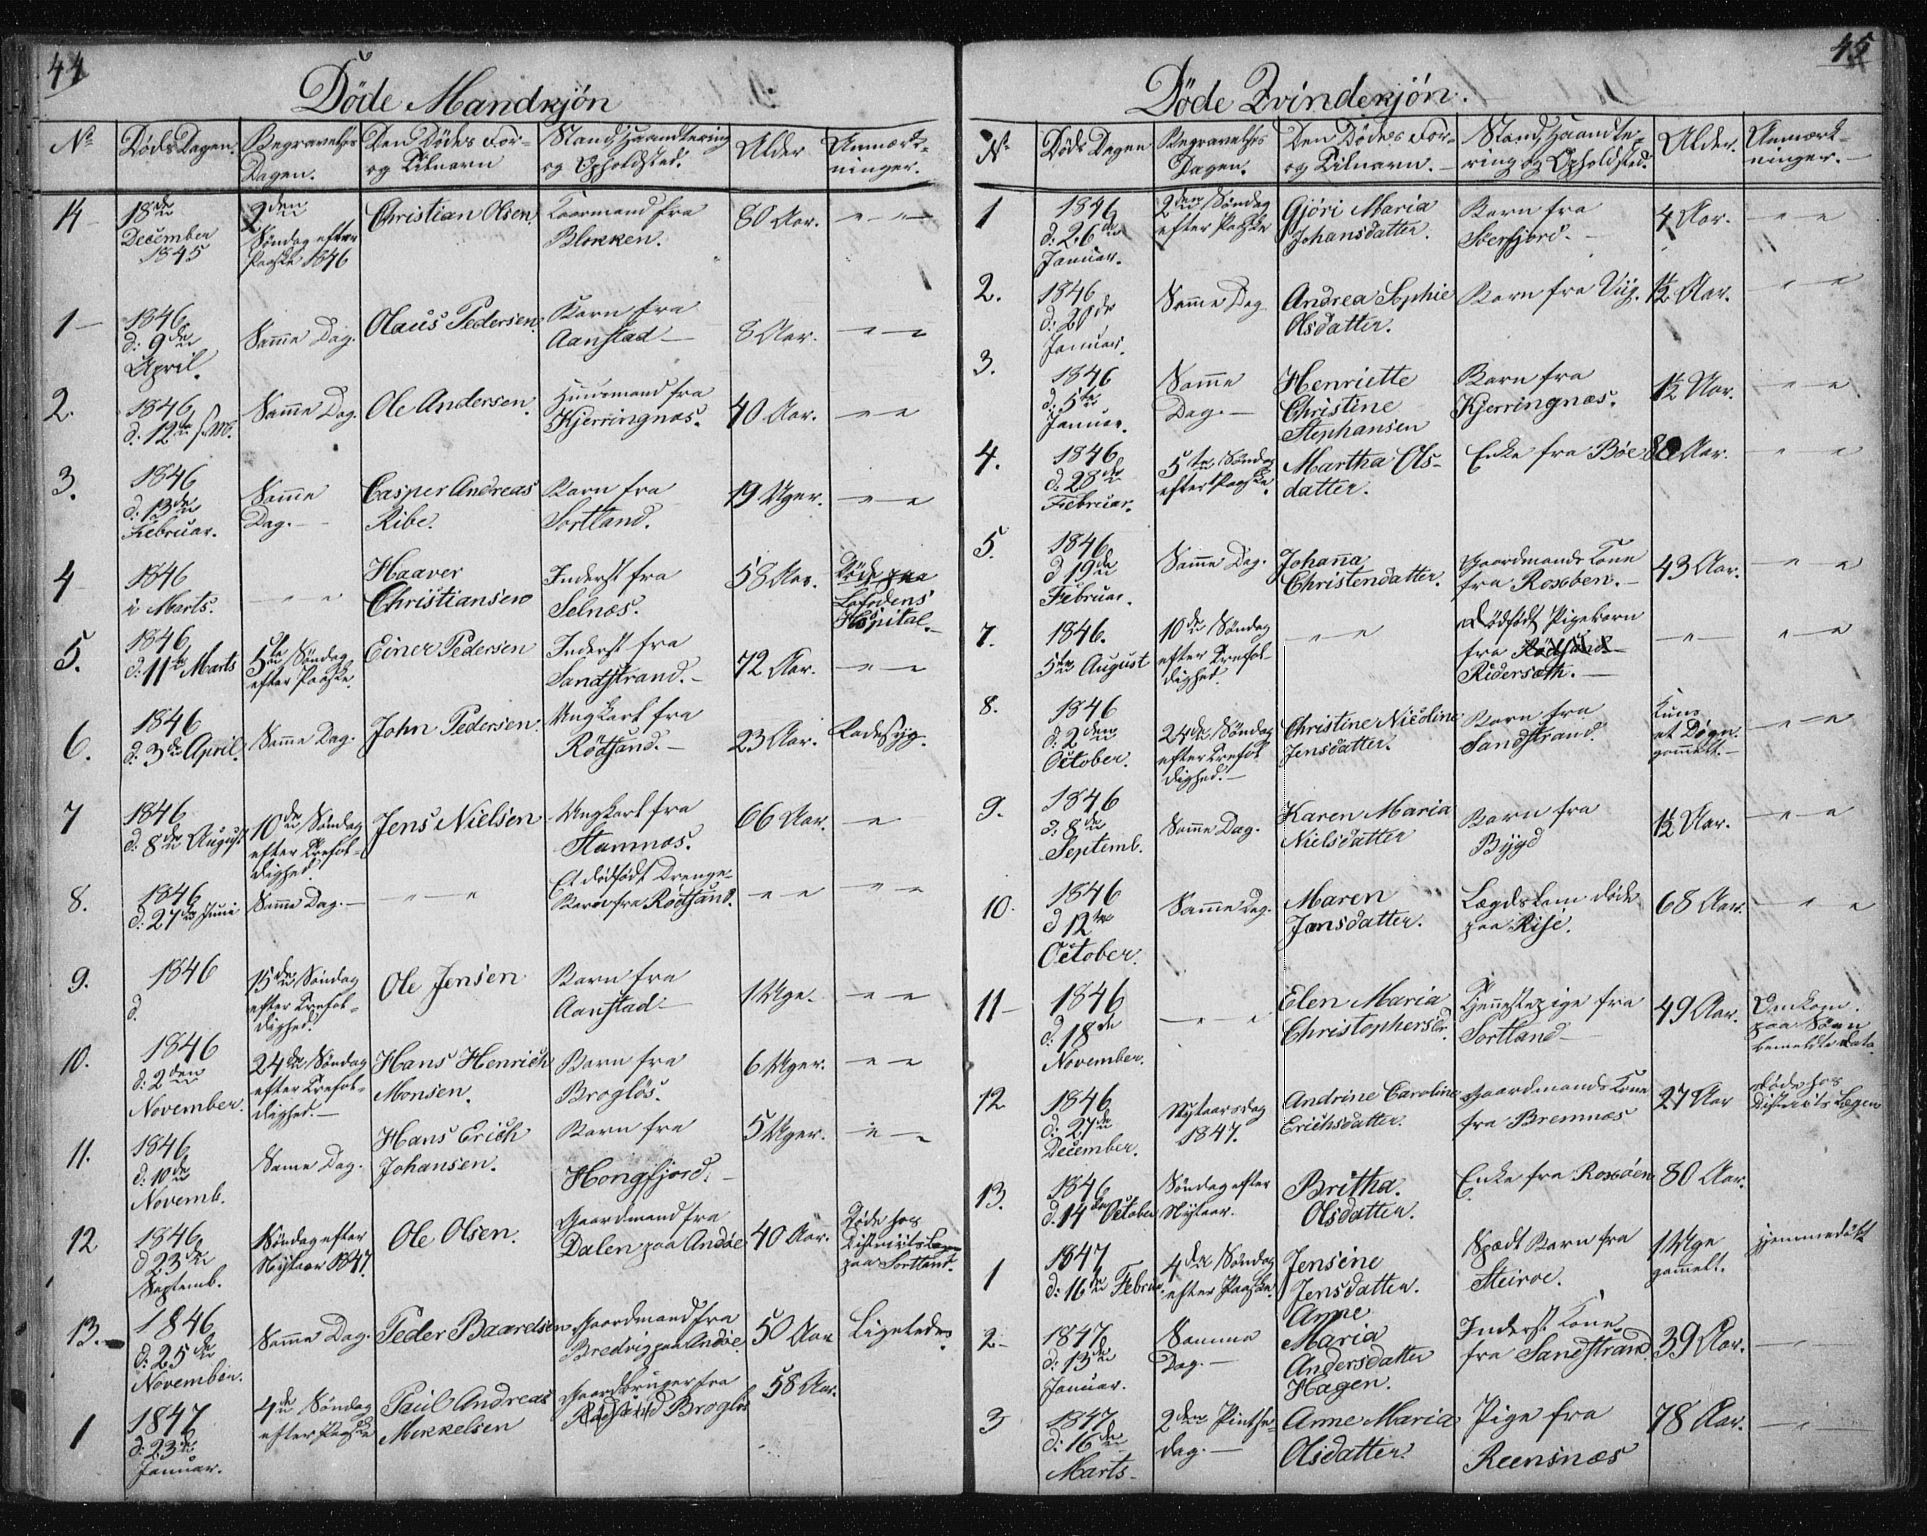 44
Døde Mandkjøn
No
Døds Dagen.
Begravelses
Dagen.
Den Dødes For-
og Tilnavn
Stand, Haandtering
og Opholdsted.
Alder
Anmærk-
ninger.
14
18de
December
1845
2den
Søndag efter
Paaske 1846
Christian Olsen.
Kaarmand fra
Blokken.
80 Aar.
1
1846
d: 9de
April.
Samme Dag.
Olaus Pedersen.
Barn fra
Aanstad
8 Aar.
2.
1846
d: 12te
Samme Dag.
Ole Andersen.
Huusmand fra
Kjerringnæs.
40 Aar.
3.
1846
d: 13de
Februar.
Samme
Dag.
Casper Andreas
Ribe.
Barn fra
Sortland.
19 Uger.
4
1846
i Marts.
Haaver
Christiansen
Inderst fra
Selnæs.
58 Aar.
Døde paa
Lofodens
Hospital.
5.
1846
d: 11te Marts
5te Søndag
efter Paaske.
Einer Pedersen
Inderst fra
Sandstrand.
72 Aar.
6.
1846
d: 3de April.
Samme Dag.
John Pedersen.
Ungkarl fra
Rødsand.
23 Aar.
Radesyg.
7
1846
d: 8de August
10de Søndag
efter Trefol-
dighed.
Jens Nielsen
Ungkarl fra
Hamnæs.
66 Aar.
8.
1846
d: 27de Juni
Samme Dag.
Et dødfødt Drenge-
Barn fra Rødsand.
9.
1846
d.
15de Søndag
efter Trefol-
dighed.
Ole Jensen
Barn fra
Aanstad
1 Uge.
10.
1846
d: 2den
November.
24de Søndag
efter Trefol-
dighed.
Hans Henrich
Monsen.
Barn fra
Brogløs.
6 Uger.
11.
1846
d: 10de
Novemb.
Same Dag.
Hans Erich
Johansen.
Barn fra
Hongfjord.
5 Uger.
12
1846
d 23de
Septemb.
Søndag efter
Nytaar 1847.
Ole Olsen.
Gaardmand fra
Dalen paa Andøe
40 Aar.
Døde hos
Districtslægen
paa Sortland.
13.
1846
d: 25de
November.
Samme Dag.
Peder Baardsen
Gaardmand fra
Bredvig paa Andøe.
50 Aar
Ligeledes.
1
1847
d: 23de
Januar.
4de Søndag
efter Paaske
Paul Andreas
Mikkelsen
Gaardbruger fra
Brogløs
58 Aar.
45
Døde Qvindekjøn.
No
Døds Dagen
Begravelses
Dagen.
Den Dødes For-
og Tilnavn.
Stand, Haandte-
ring og Opholdsted.
Alder.
Anmærk-
ninger.
1
1846
d: 26de
Januar.
2den Søndag
efter Paaske
Gjøri Maria
Johansdatter.
Barn fra
Soerfjord.
4 Aar.
2.
1846
d: 20de
Januar.
Samme Dag
Andrea Sophie
Olsdatter.
Barn fra Viig.
1½ Aar.
3.
1846
d: 5te
Januar.
Samme
Dag.
Henriette
Christine
Stephansen
Barn fra
Kjerringnæs.
1½ Aar.
4.
1846
d. 28de
Februar.
5te Søndag
efter Paaske.
Martha Ols-
datter.
Enke fra Bøe
80 Aar.
5.
1846
d 19de
Februar.
Samme Dag.
Johana
Christendatter.
Gaardmands Kone
fra
43 Aar.
7.
1846.
5te August
10de Søndag
efter Trefol-
dighed.
Dødfødt Pigebarn
fra Rødsand
Ridersæth.
8.
1846
d: 2den
October.
24de Søndag
efter Trefol-
dighed.
Christine Nicoline
Jensdatter.
Barn fra
Sandstrand.
Kuns
et Døgn
gammelt.
9.
1846
d: 8de
Septemb.
Samme Dag.
Karen Maria
Nielsdatter
Barn fra
Bygd
1½ Aar.
10.
1846
d 12te
October.
Samme Dag.
Maren
Jonsdatter.
Lægdslem døde
paa Rise.
68 Aar.
11
1846
d: 18de
November.
Elen Maria
Christophersdr.
Tjenestepige fra
Sortland
49 Aar.
Omkom
paa Søen
bemeldte Dato.
12
1846
d: 27de
December.
Nytaarsdag
1847.
Andrine Caroline
Erichsdatter.
Gaardmands Kone
fra Bremnæs
27 Aar
døde hos
Districts Lægen
13.
1846
d. 14de October
Søndag efter
Nytaar.
Britha
Olsdatter.
Enke fra
80 Aar.
1
1847
d: 16de Februar
4de Søndag
efter Paaske.
Jensine
Jensdatter.
Spædt Barn fra
Steiroe.
1 Uge
gammelt.
Hjemmedøbt
2
1847
d: 13de
Januar.
Samme
Dag.
Anne
Maria
Andersdatter
Hagen.
Inderst Kone
fra Sandstrand
39 Aar.
3
1847
d: 16de
Marts
2den Pintse-
dag.
Anne Maria
Olsdatter.
Pige fra
Reensnæs
78 Aar.